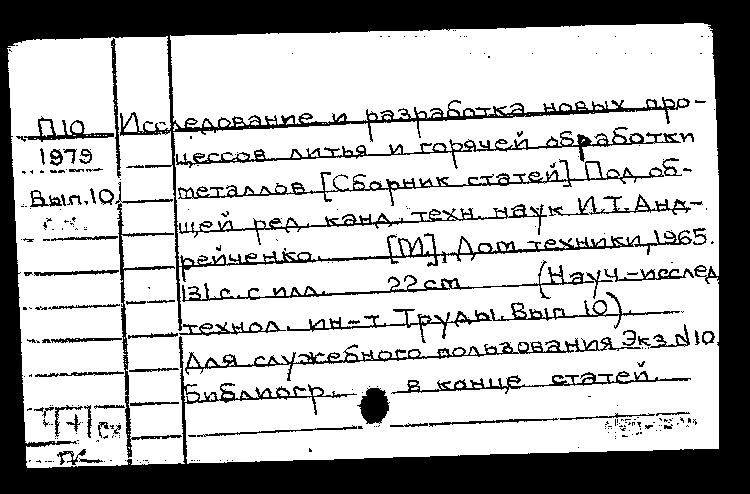 П10
1979
Вып.10.
Исследование и разработка новых про-
цессов литья и горячей обработки
металлов. [Сборник статей] Под об-
щей ред. канд. техн. наук И.Т. Анд-
рейченко. [М.], Дом техники, 1965.
131 с. с илл. 22 cm (Науч.-исслед
технол. ин-т. Труды. Вып 10).
Для служебного пользования Экз N 10.
Библиогр. в конце статей.